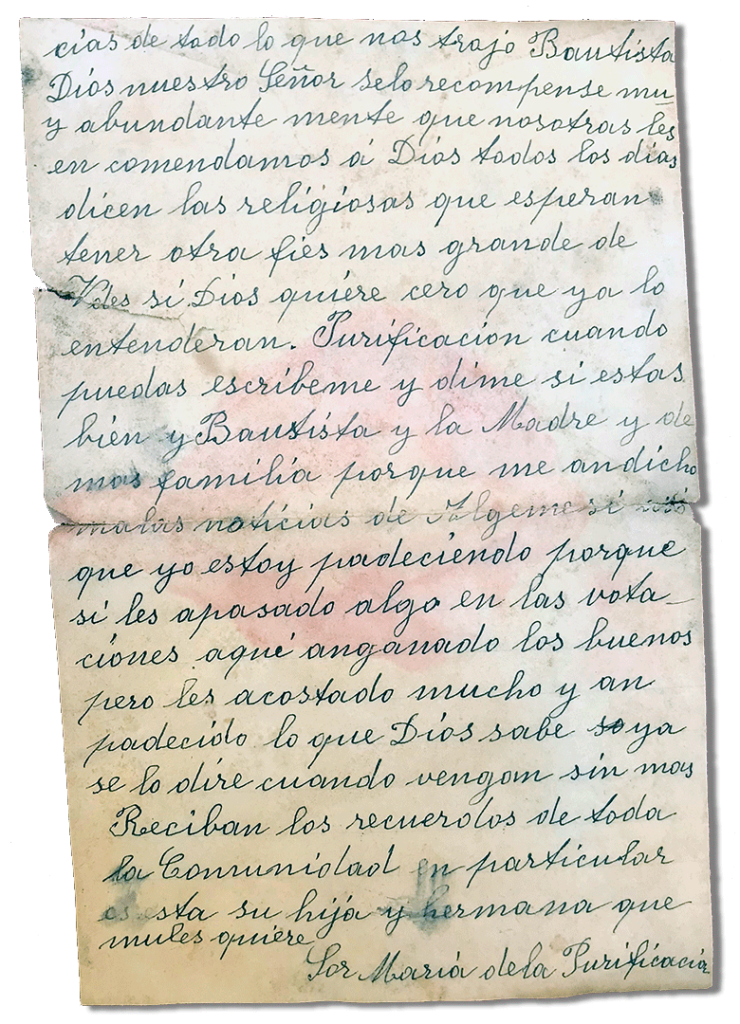 cias de todo lo que nos trajo Bautista
Dios nuestro Señor selo recompense mu_
y abundante mente que nosotras les
en comendamos á Dios todos los dias
dicen las religiosas que esperan
tener otra fies mas grande de
Vdes si Dios quiere cero que ya lo
entenderan. Purificacion cuando
puedas escribeme y dime si estas
bien y Bautista y la Madre y de
mas familia porque me an dicho
malas noticias de Algemesi
que yo estoy padeciendo porque
si les apasado algo en las vota_
ciones aqui anganado los buenos
pero les acostado mucho y an
padecido lo que Dios sabe ya
se lo dire cuando vengan sin mas
Reciban los recuerdos de toda
la Comunidad en particular
esta su hija y hermana que
mules quiere
Sor Maria dela Purificacion